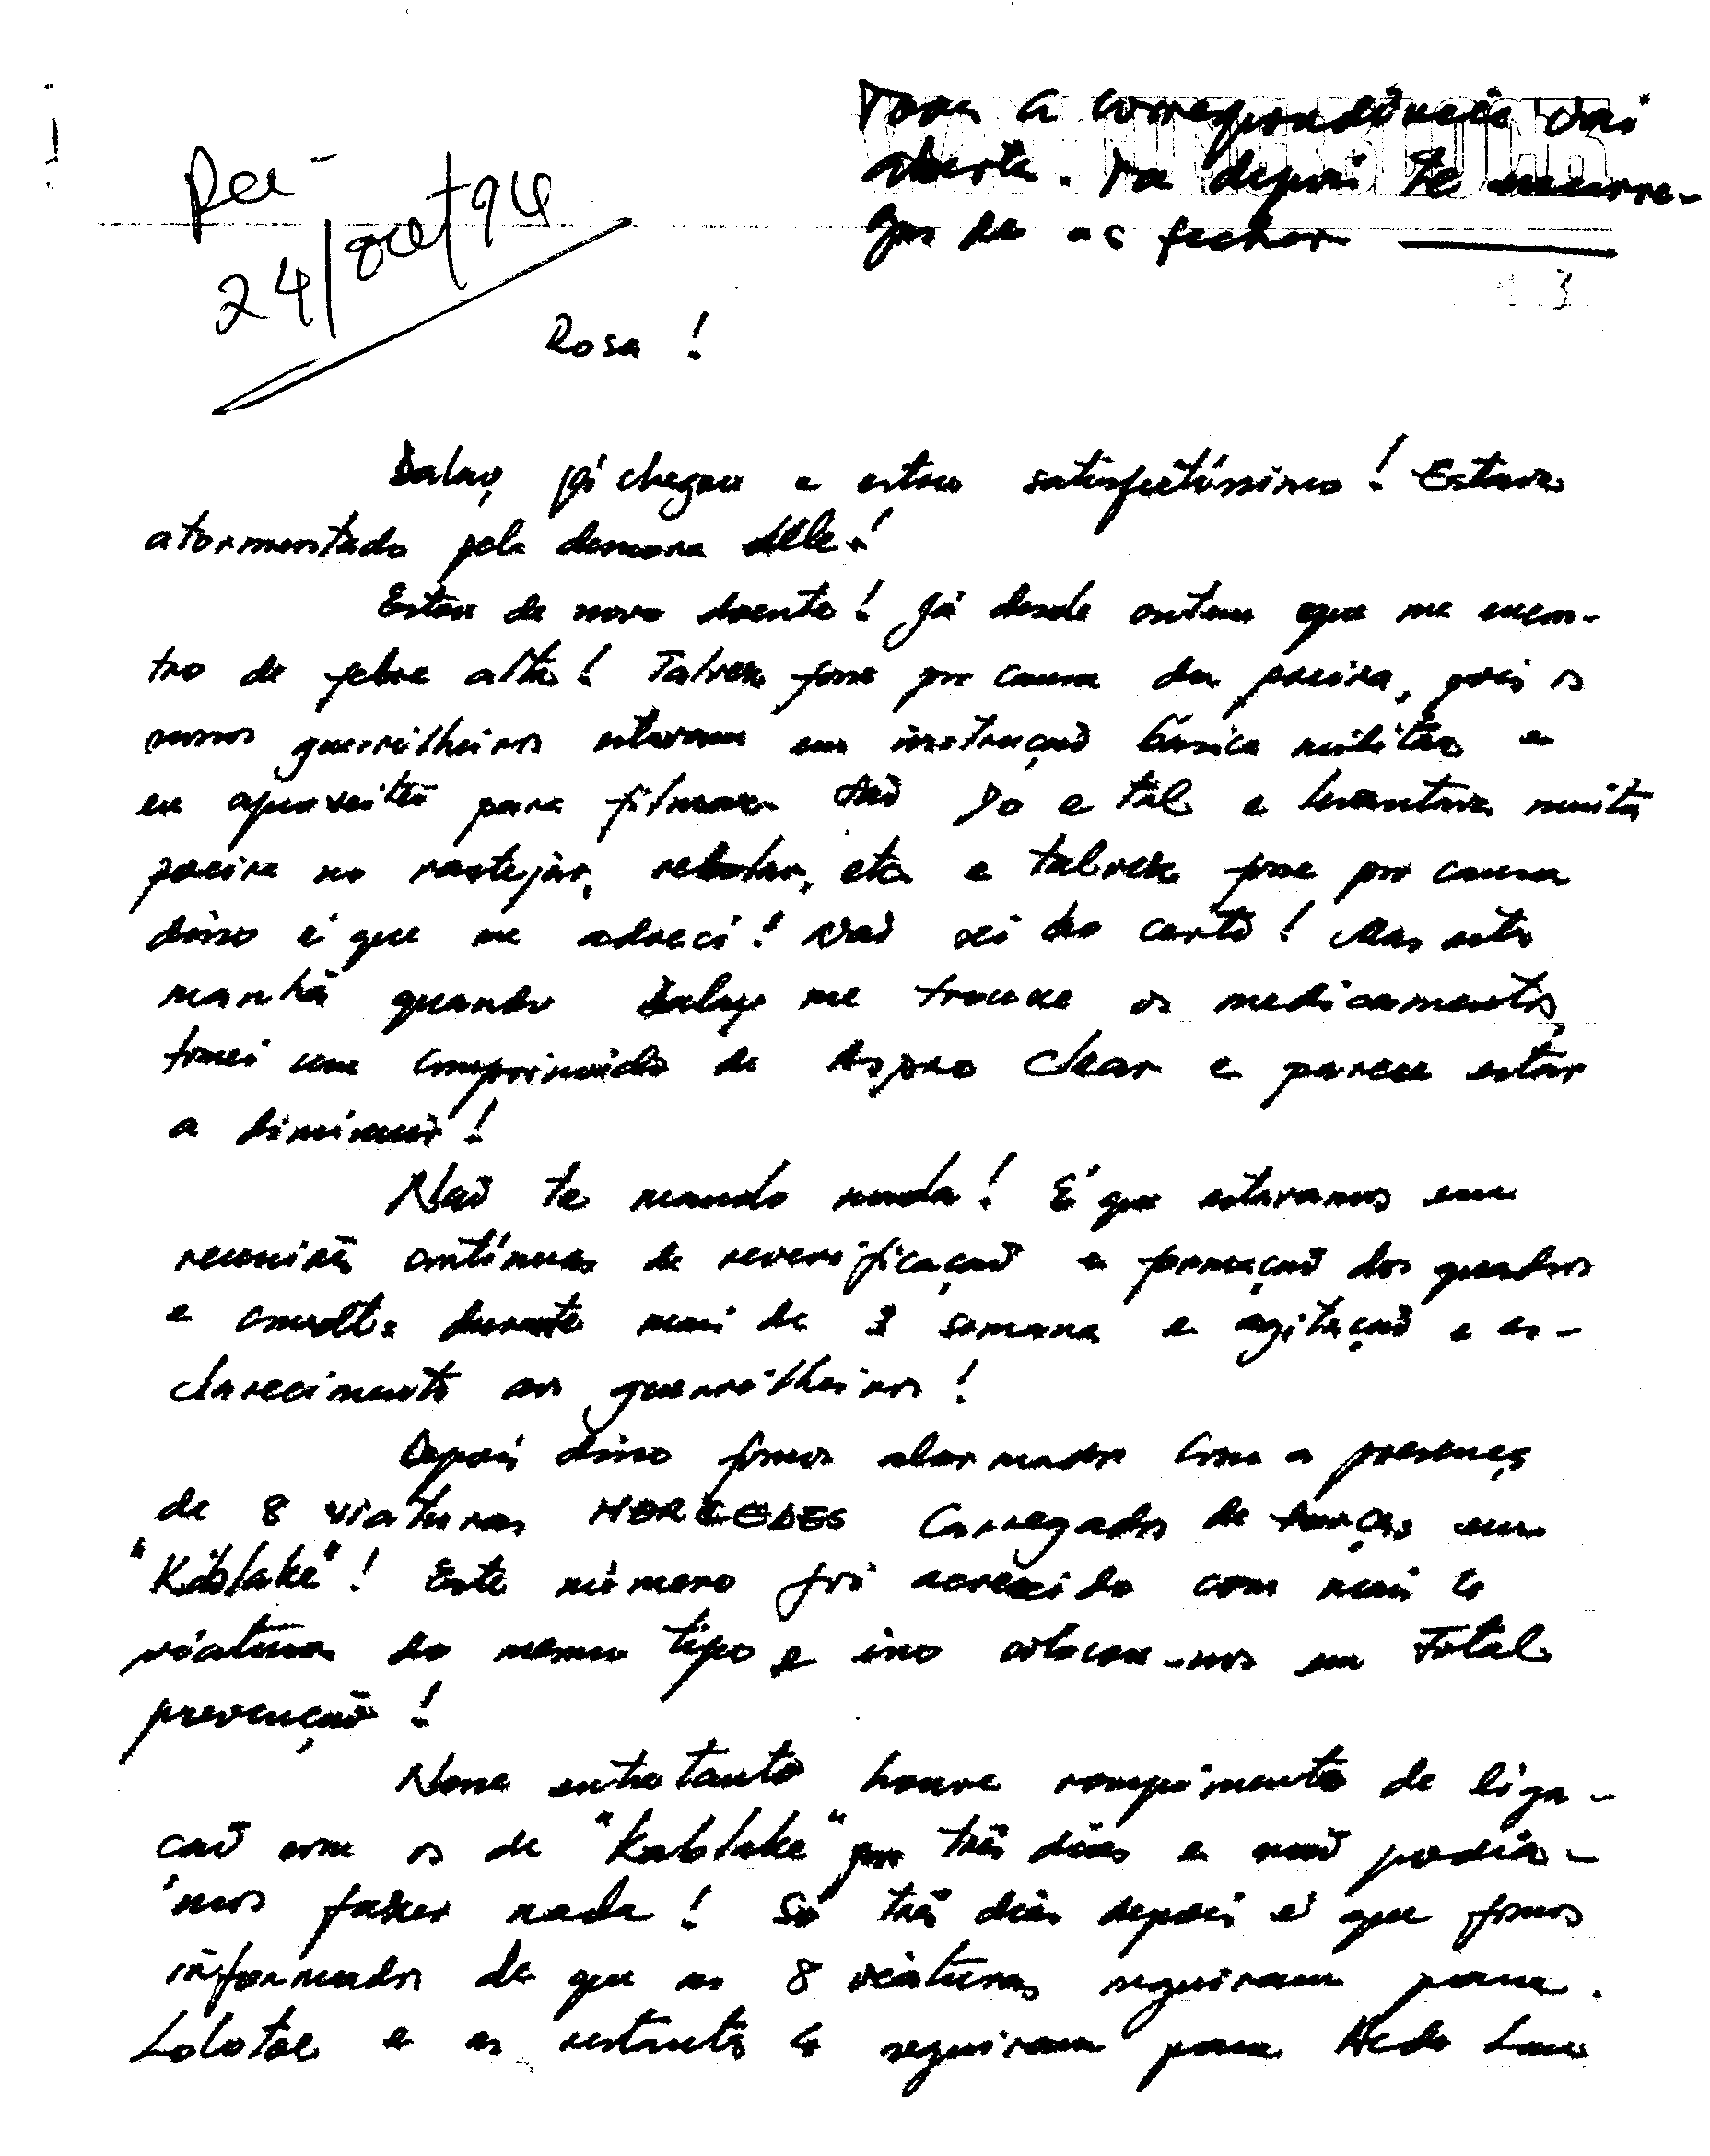 Toda a correspondência vai
aberta. Tu depois te encarre-
gas de as fechar
Rec
24/out/94
3
Rosa!
Dalay já chegou e estou satisfeitíssimo! Estava
atormentado pela demora dele!
Estou de novo doente! Já desde ontem que me encon-
tro de febre alta! Talvez fosse por causa da poeira, pois os
nossos guerrilheiros estavam em instrução básica militar e
eu aproveitei para filmar e tal e levantava muita
poeira no rastejar, rebolar, etc e talvez fosse por causa
disso é que me adoeci! Não sei ao certo! Mas esta
manhã quando Dalay me trouxe os medicamentos,
tomei um comprimido de Aspro Clear e parece estar
a diminuir!
Não te mando nada! É que estavamos em
reuniões contínuas de reverificação e formação dos quadros
e consultas durante mais de 1 semana e agitação e es-
clarecimento aos guerrilheiros!
Depois disso fomos alarmados com a presença
de 8 viaturas MERCEDES carregados de forças em
"Kablake"! Este número foi acrescido com mais 6
viaturas do mesmo tipo e isso colocou-nos em total
prevenção!
Nesse entretanto houve rompimento de liga-
ção com os de "Kablake" por três dias e não podía-
mos fazer nada! Só três dias depois é que fomos
informados de que as 8 viaturas seguiram para
Lolotoe e as restantes 6 seguiram para